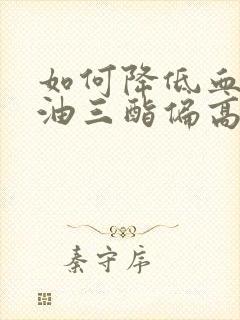 如何降低血
油三酯偏高
秦守序